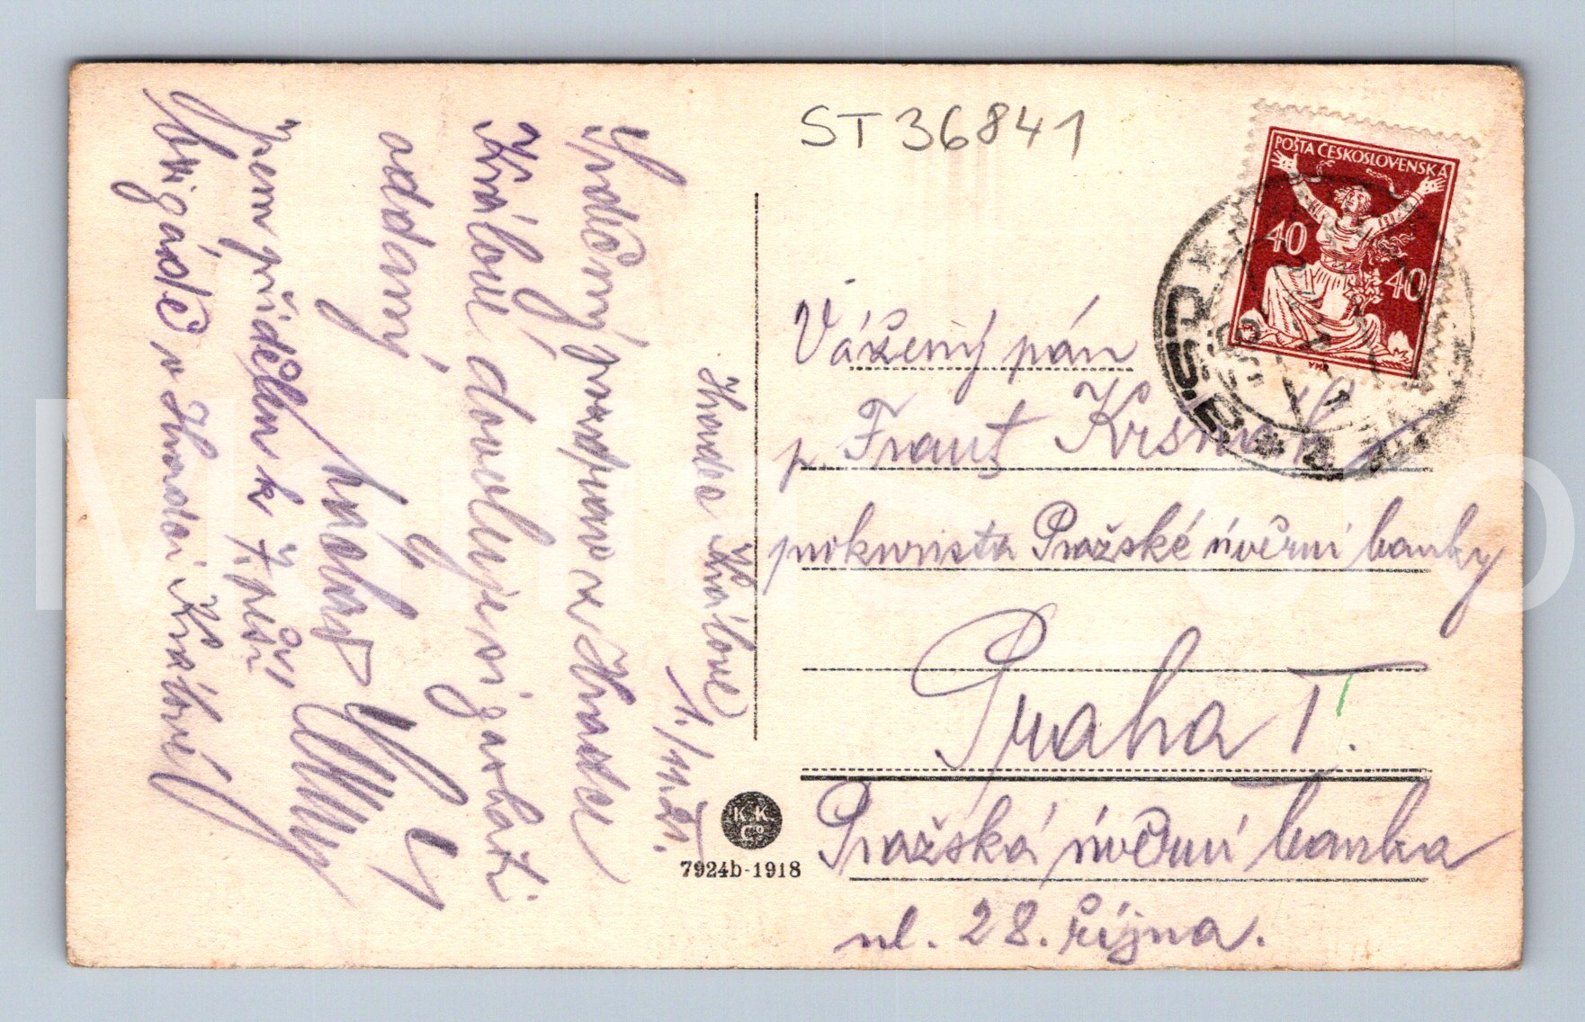 ST 36841
POŠTA ČESKOSLOVENSKÁ
40
40
Hradec Králové
1./11.21.
Srdečný pozdrav z Hradce
Králové dovoluje si zaslati
oddaný
Jsem přidělen k 7. pěší
brigádě v Hradci Králové
Vážený pán
p. Frant
prokurista Pražské úvěrní banky
Praha I.
Pražská úvěrní banka
ul. 28. října.
K K
Co
7924b-1918